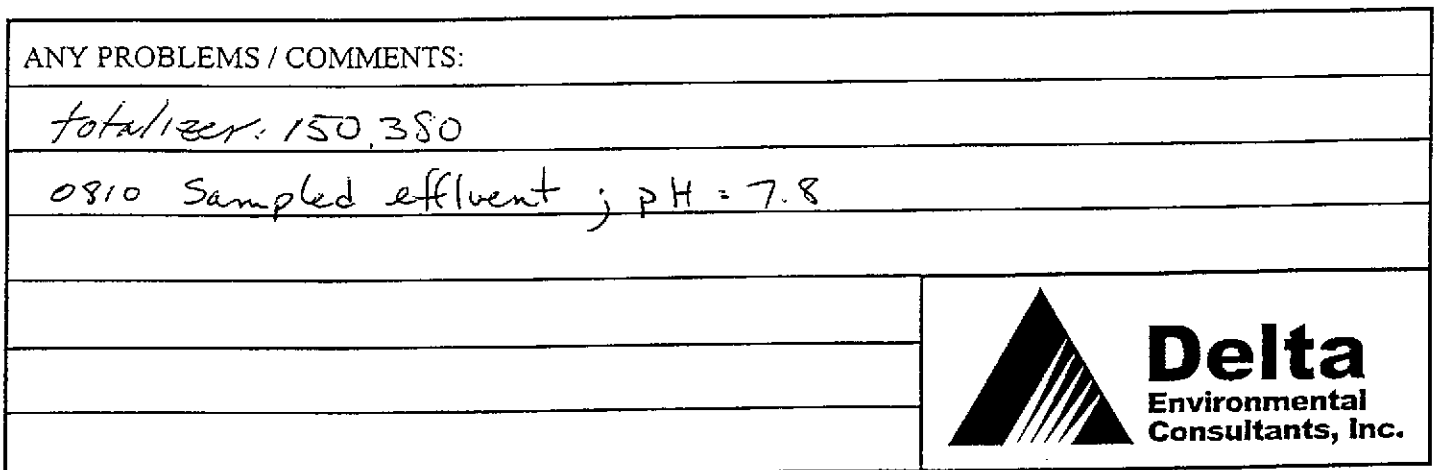 ANY PROBLEMS / COMMENTS:
totalizer: 150,380
0810 Sampled effluent ; pH = 7.8
Delta
Environmental
Consultants, Inc.